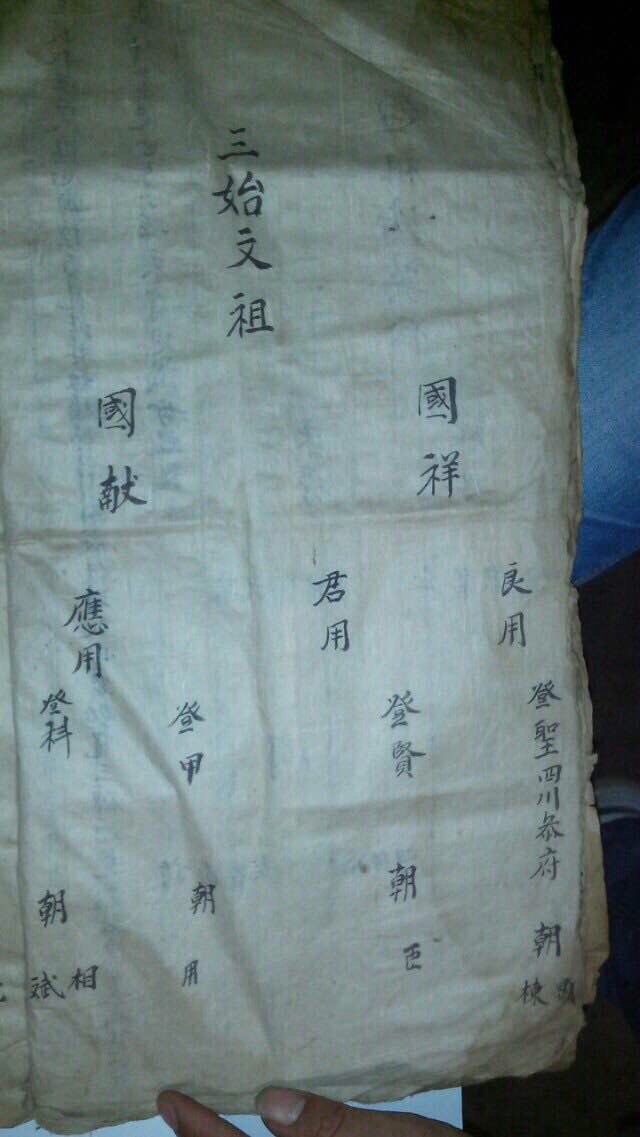 三始文祖
國祥
國献
良用
君用
應用
登聖四川恭府
登賢
登甲
登科
朝
棟
朝
臣
朝
用
朝
相
斌